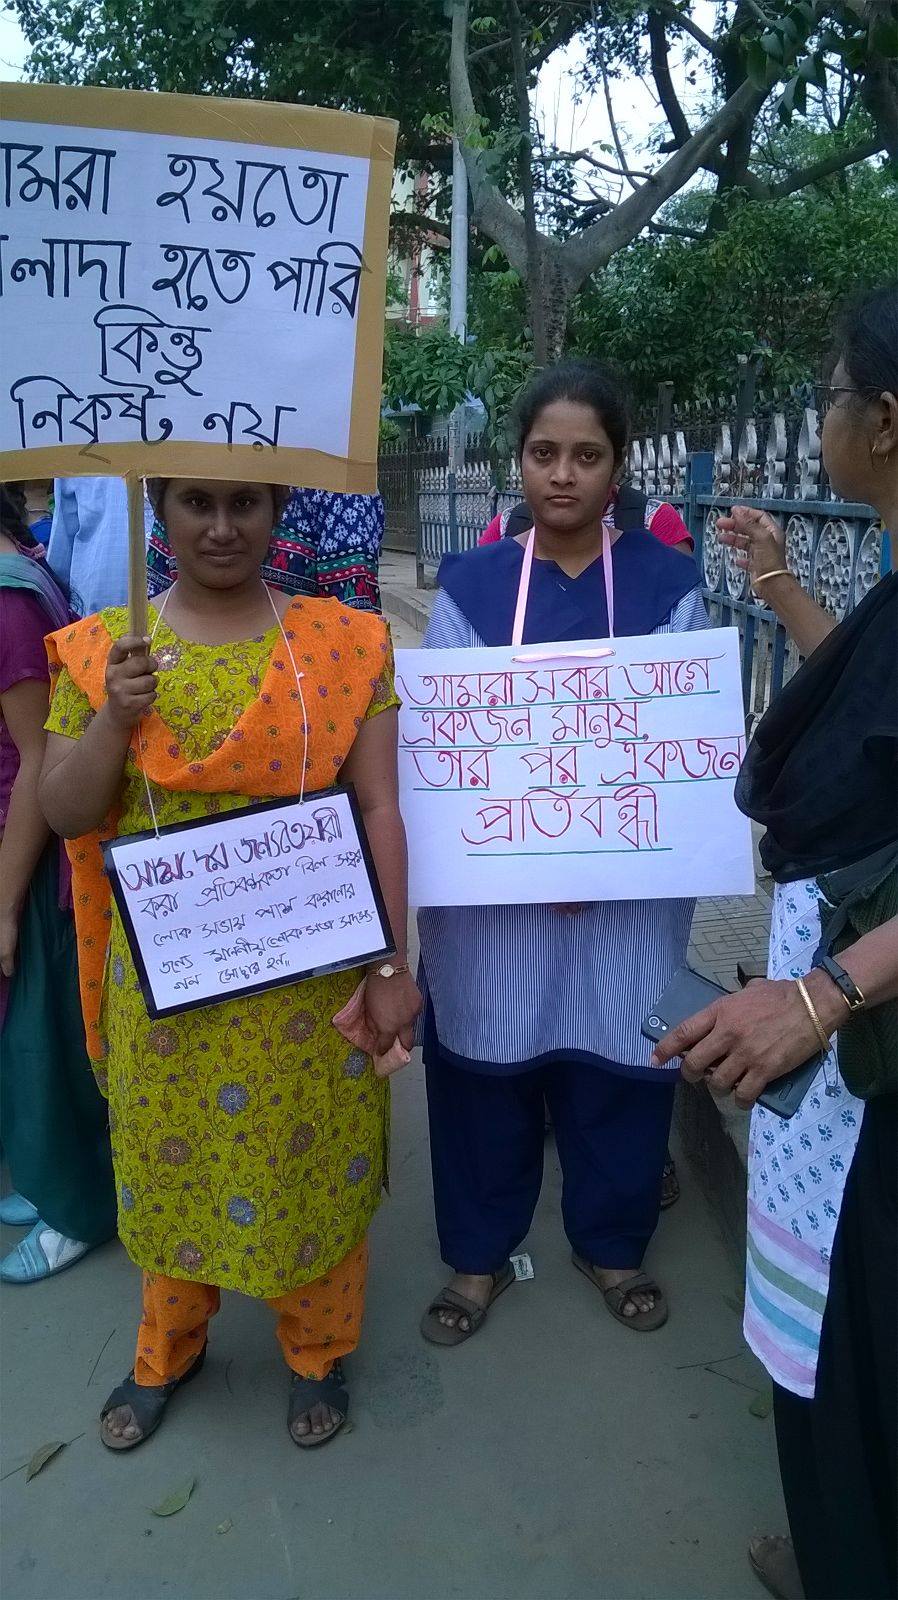 আমরা হয়তো
আলাদা হতে পারি
কিন্তু
নিকৃষ্ট নয়
আমরা সবার আগে
একজন মানুষ
তার পর একজন
প্রতিবন্ধী
আমাদের জন্য তৈয়ারী
করা প্রতিবন্ধকতা বিল সত্বর
লোক সভায় পাশ করানোর
জন্যে মাননীয় লোকসভা সদস্য-
গন সোচ্চার হন॥